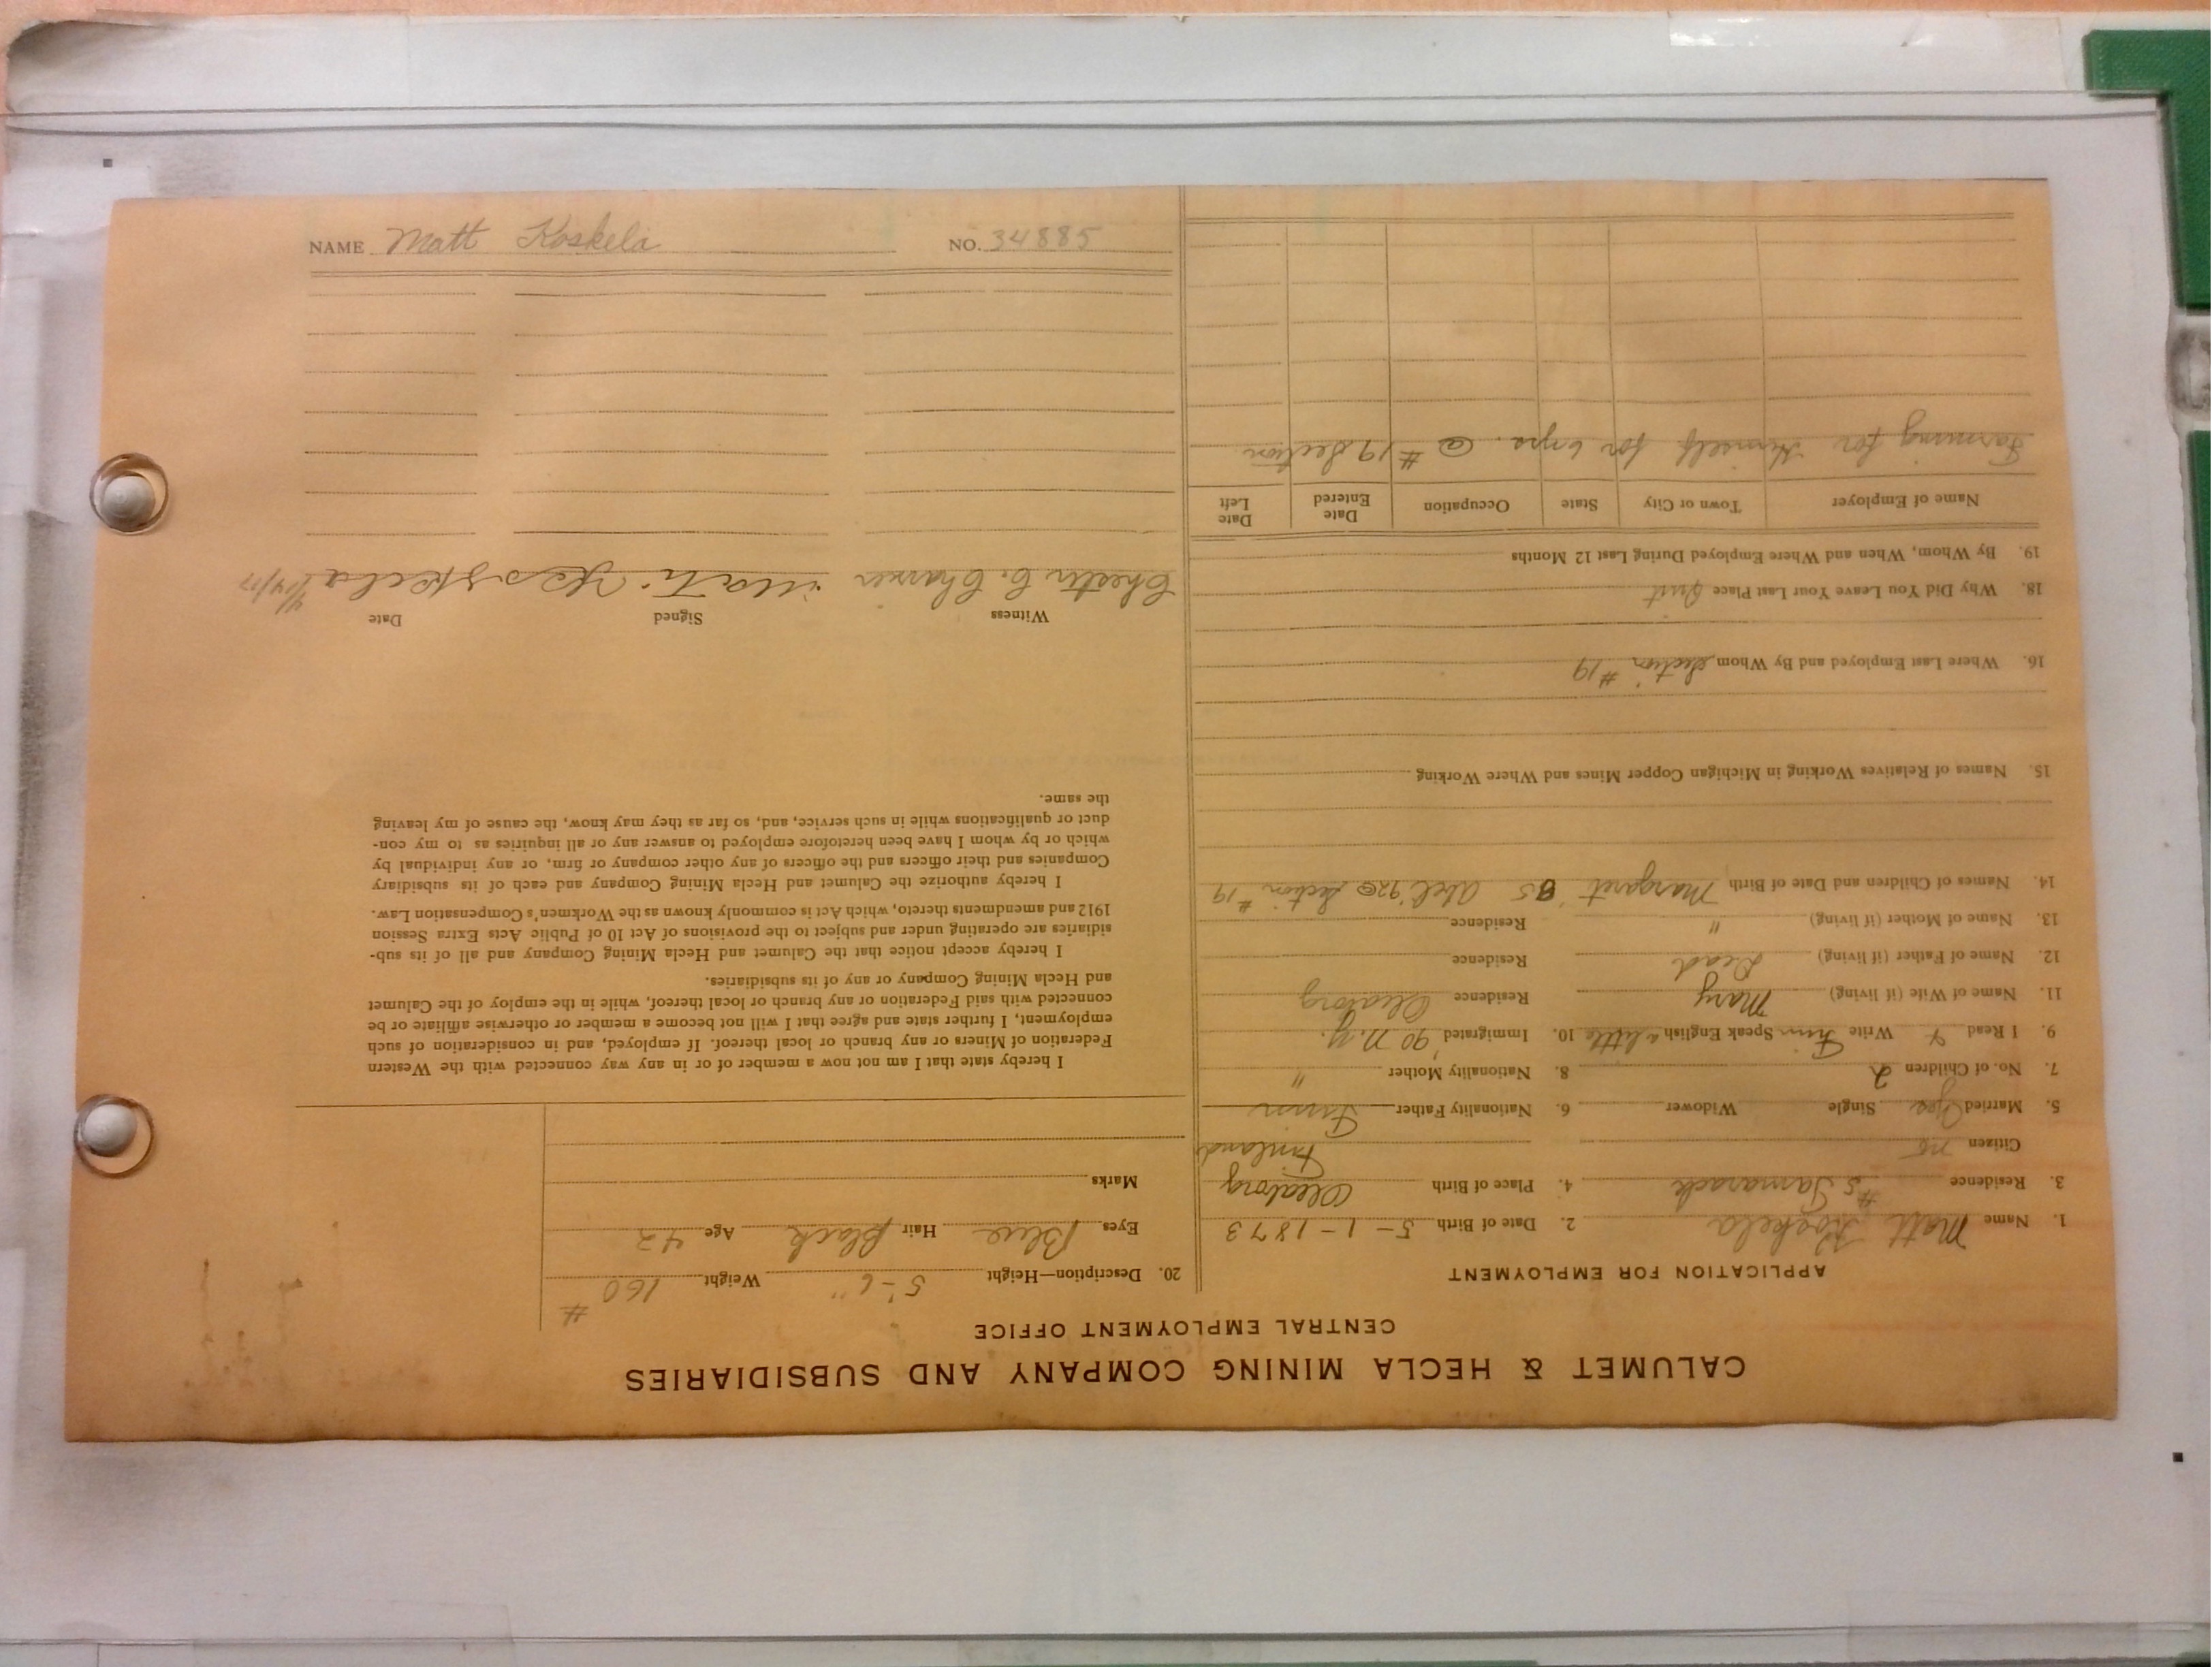 CALUMET & HECLA MINING COMPANY AND SUBSIDIARIES
CENTRAL EMPLOYMENT OFFICE
APPLICATION FOR EMPLOYMENT
1. Name Matt Koskela 2. Date of Birth 5-1-1873
3. Residence #5 Tamarack 4. Place of Birth
Citizen no Finland
5. Married Yes Single Widower 6. Nationality Father Finn
7. No. of Children 2 8. Nationality Mother "
9. I Read & Write Finn Speak English a little 10. Immigrated '90 N.Y.
11. Name of Wife (if living) Mary Residence
12. Name of Father (if living) Dead Residence
13. Name of Mother (if living) " Residence
14. Names of Children and Date of Birth, Margaret Section #19
15. Names of Relatives Working in Michigan Copper Mines and Where Working
16. Where Last Employed and By Whom Section #19
18. Why Did You Leave Your Last Place Quit
19. By Whom, When and Where Employed During Last 12 Months
Name of Employer Town or City State Occupation Date Entered Date Left
Farming for Himself for 6 yrs. @ #19 Section
20. Description—Height 5'-6" Weight 160 #
Eyes Blue Hair Black Age 42
Marks
I hereby state that I am not now a member of or in any way connected with the Western
Federation of Miners or any branch or local thereof. If employed, and in consideration of such
employment, I further state and agree that I will not become a member or otherwise affiliate or be
connected with said Federation or any branch or local thereof, while in the employ of the Calumet
and Hecla Mining Company or any of its subsidiaries.
I hereby accept notice that the Calumet and Hecla Mining Company and all of its sub-
sidiaries are operating under and subject to the provisions of Act 10 of Public Acts Extra Session
1912 and amendments thereto, which Act is commonly known as the Workmen's Compensation Law.
I hereby authorize the Calumet and Hecla Mining Company and each of its subsidiary
Companies and their officers and the officers of any other company or firm, or any individual by
which or by whom I have been heretofore employed to answer any or all inquiries as to my con-
duct or qualifications while in such service, and, so far as they may know, the cause of my leaving
the same.
Witness Signed Date
Matti Koskela
NAME Matt Koskela NO. 34885